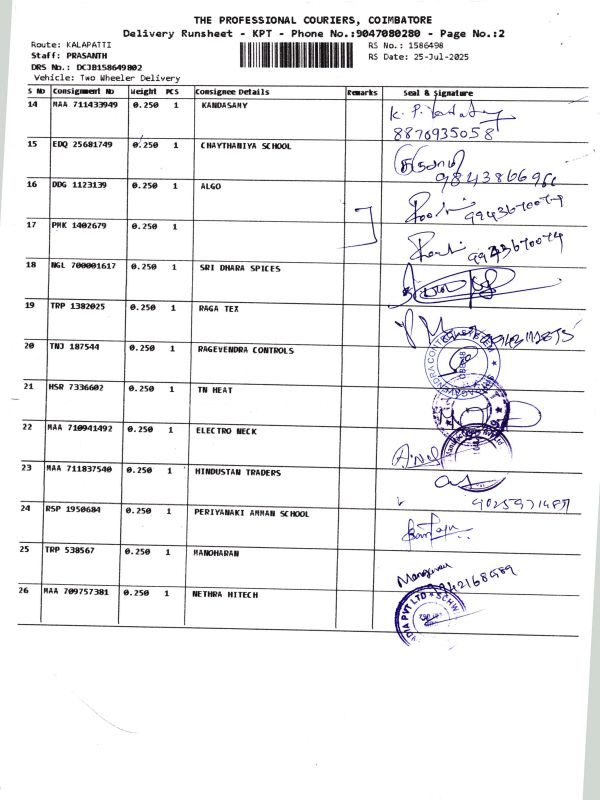 THE PROFESSIONAL COURIERS, COIMBATORE
Delivery Runsheet - KPT - Phone No.:9047080280 - Page No.:2
Route: KALAPATTI
RS No.: 1586498
Staff: PRASANTH
RS Date: 25-Jul-2025
DRS No.: DCJB158649802
Vehicle: Two Wheeler Delivery
S No Consignment No Weight PCS Consignee Details Remarks Seal & Signature
14 MAA 711433949 0.250 1 KANDASAMY
8870935058
15 EDQ 25681749 0.250 1 CHAYTHANIYA SCHOOL
16 DDG 1123139 0.250 1 ALGO
17 PMK 1402679 0.250 1
9943670074
18 NGL 700001617 0.250 1 SRI DHARA SPICES
19 TRP 1382025 0.250 1 RAGA TEX
20 TNJ 187544 0.250 1 RAGEVENDRA CONTROLS
21 HSR 7336602 0.250 1 TN HEAT
22 MAA 710941492 0.250 1 ELECTRO NECK
23 MAA 711837540 0.250 1 HINDUSTAN TRADERS
24 RSP 1950684 0.250 1 PERIYANAKI AMMAN SCHOOL
25 TRP 538567 0.250 1 MANOHARAN
26 MAA 709757381 0.250 1 NETHRA HITECH